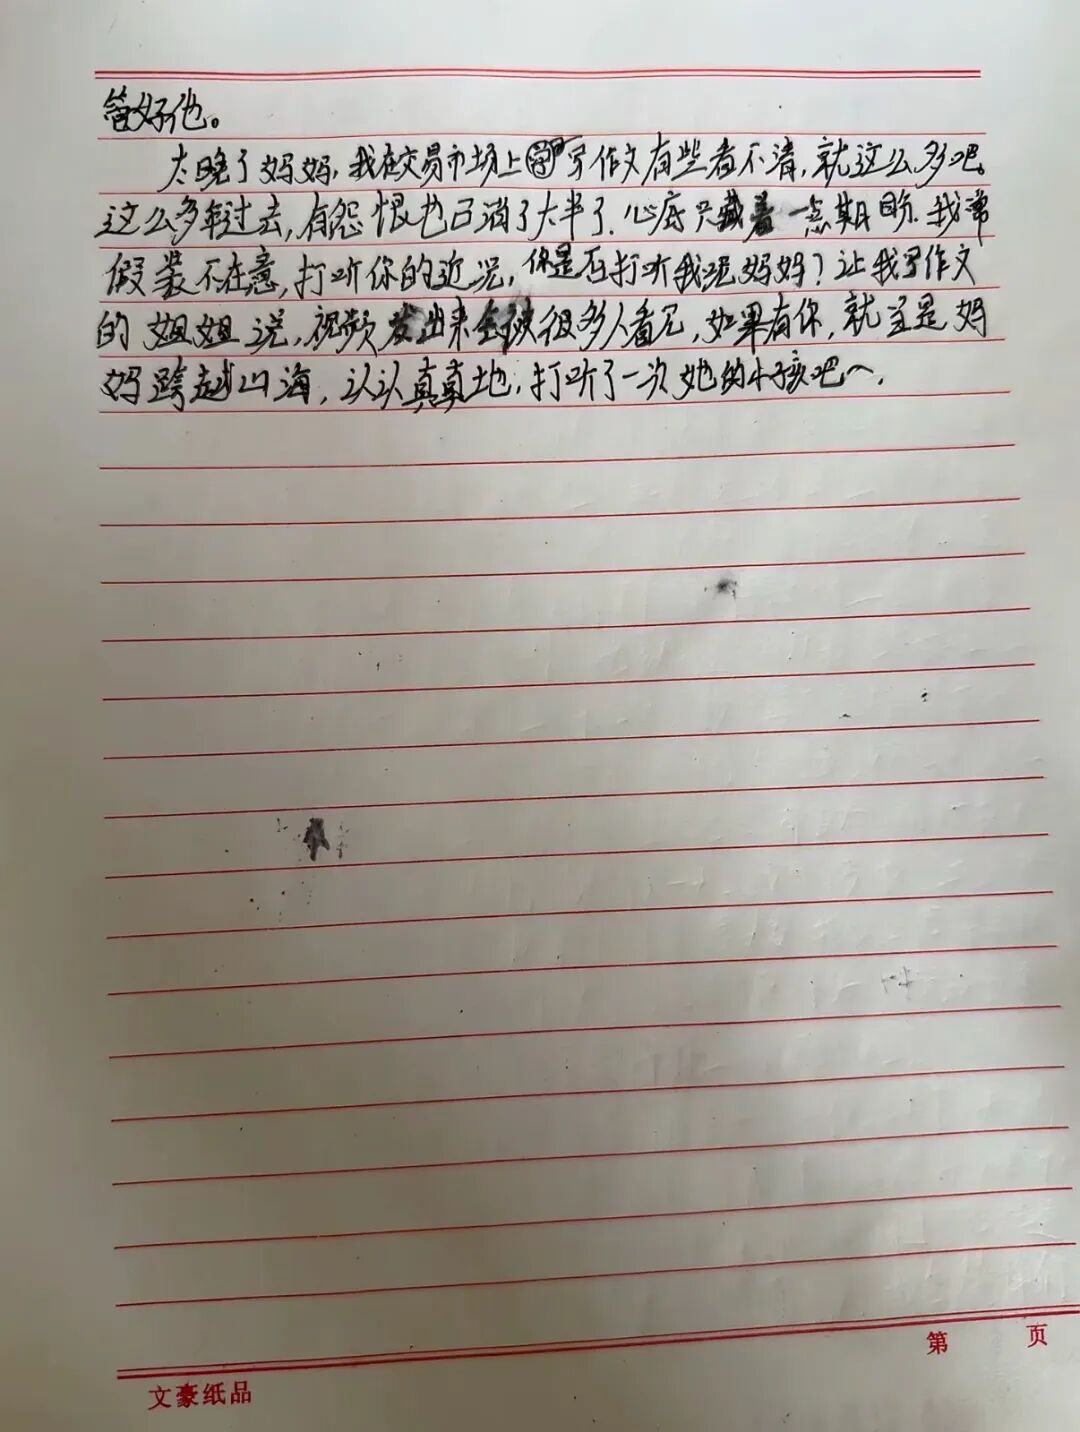 管好他。
太晚了妈妈，我在交易市场上写作文有些看不清，就这么多吧。
这么多年过去，有怨恨也已消了大半了，心底只藏着一点期盼，我常
假装不在意，打听你的近况，你是否打听我呢妈妈？让我写作文
的姐姐说，视频发出来会被很多人看见，如果有你，就当是妈
妈跨越山海，认认真真地，打听了一次她的小孩吧～，
第 页
文豪纸品